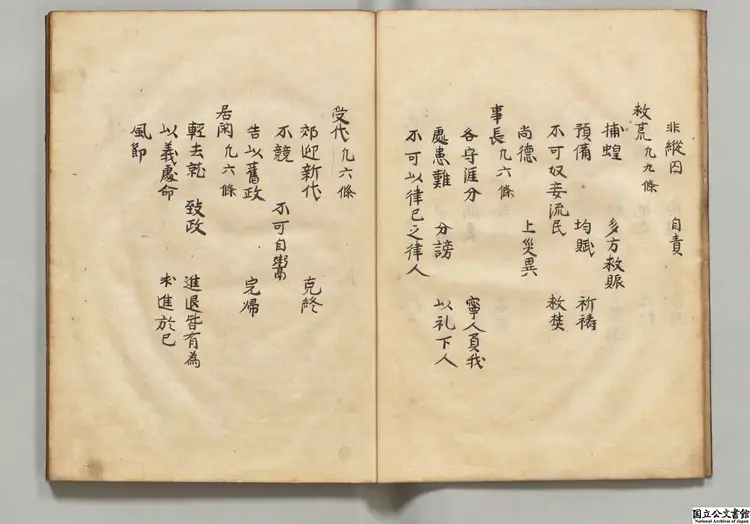 非縱囚 自責
救荒 凢九條
捕蝗 多方救賑
預備 均賦 祈禱
不可奴妾流民 救焚
尚德 上災異
事長 凢六條
各守涯分 寧人負我
處患難 分謗 以礼下人
不可以律己之律人
受代 凢六條
郊迎新代 克終
不競 不可自鬻
告以舊政 完帰
居閑 凢六條
輕去就 致政 進退皆有為
以義處命 求進於己
風節
国立公文書館
National Archives of Japan